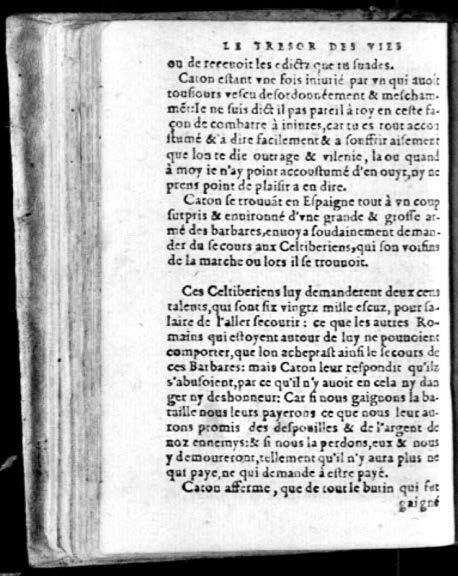 LE TRESOR DES VIES
ou de recevoit les edictz que tu suades.
Caton estant vne fois iniurié par vn qui auoit
tousiours vescu desordonnéement & mescham-
mét: Ie ne suis dict il pas pareil à toy en ceste fa-
çon de combatre à iniures, car tu es tout accou
stumé & à dire facilement & a souffrir aisement
que lon te die outrage & vilenie, la ou quand
à moy ie n'ay point accoustumé d'en ouyr, ny ne
prens point de plaisir a en dire.
Caton se trouuāt en Espaigne tout à vn coup
surpris & enuironné d'vne grande & grosse ar-
mé des barbares, enuoya soudainement deman-
der du secours aux Celtiberiens, qui son voisins
de la marche ou lors il se trouuoit.
Ces Celtiberiens luy demanderent deux cens
talents, qui sont six vingtz mille escuz, pour sa-
laire de l'aller secourir : ce que les autres Ro-
mains qui estoyent autour de luy ne pouuoient
comporter, que lon acheptast ainsi le secours de
ces Barbares: mais Caton leur respondit qu'ilz
s'abusoient, par ce qu'il n'y auoit en cela ny dan
ger ny deshonneur: Car si nous gaignons la ba-
taille nous leurs payerons ce que nous leur au-
rons promis des despouilles & de l'argent de
noz ennemys: & si nous la perdons, eux & nous
y demoureront, tellement qu'il n'y aura plus ne
qui paye, ne qui demande à estre payé.
Caton afferme, que de tout le butin qui fut
gaigné